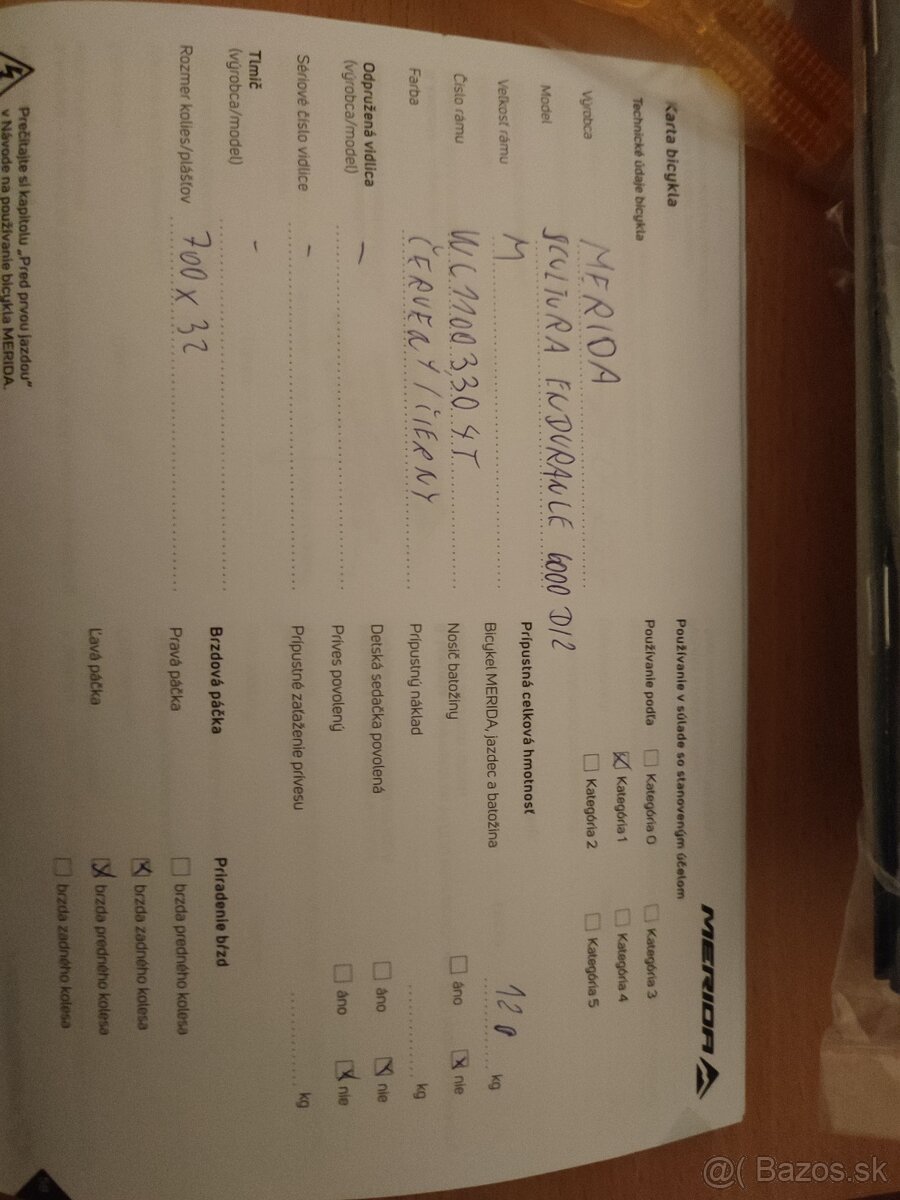 Karta bicykla
Technické údaje bicykla
Výrobca MERIDA
Model SCULTURA ENDURANCE 6000 DI2
Veľkosť rámu M
Číslo rámu
Farba ČERVENÝ/ČIERNY
Odpružená vidlica –
(výrobca/model)
Sériové číslo vidlice –
Tlmič –
(výrobca/model)
Rozmer kolies/plášťov 700 x 32
Prečítajte si kapitolu „Pred prvou jazdou“
v Návode na používanie bicykla MERIDA.
MERIDA
Používanie v súlade so stanoveným účelom
Používanie podľa ☐ Kategória 0 ☐ Kategória 3
☒ Kategória 1 ☐ Kategória 4
☐ Kategória 2 ☐ Kategória 5
Prípustná celková hmotnosť
Bicykel MERIDA, jazdec a batožina 120 kg
Nosič batožiny ☐ áno ☒ nie
Prípustný náklad kg
Detská sedačka povolená ☐ áno ☒ nie
Príves povolený ☐ áno ☒ nie
Prípustné zaťaženie prívesu kg
Brzdová páčka Priradenie bŕzd
Pravá páčka ☐ brzda predného kolesa
☒ brzda zadného kolesa
Ľavá páčka ☒ brzda predného kolesa
☐ brzda zadného kolesa
@( Bazos.sk